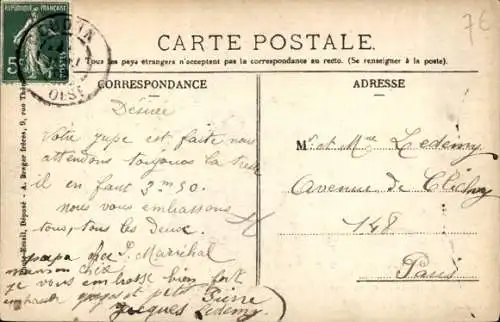 76
RÉPUBLIQUE FRANÇAISE
5
OISE
CARTE POSTALE.
Tous les pays étrangers n'acceptent pas la correspondance au recto. (Se renseigner à la poste).
CORRESPONDANCE
Désirée
Votre jupe est faite nous
attendons toujours la
il en faut 3m50.
nous vous embrassons
tous, tous les Deux.
papa chez P. Maréchal
maman chez
je vous embrasse bien fort
embrasse et
Pierre
Jacques Ledemy
ADRESSE
Mr. et Mme Ledemy
Avenue de Clichy
148
Paris
A. Breger frères, 9, rue